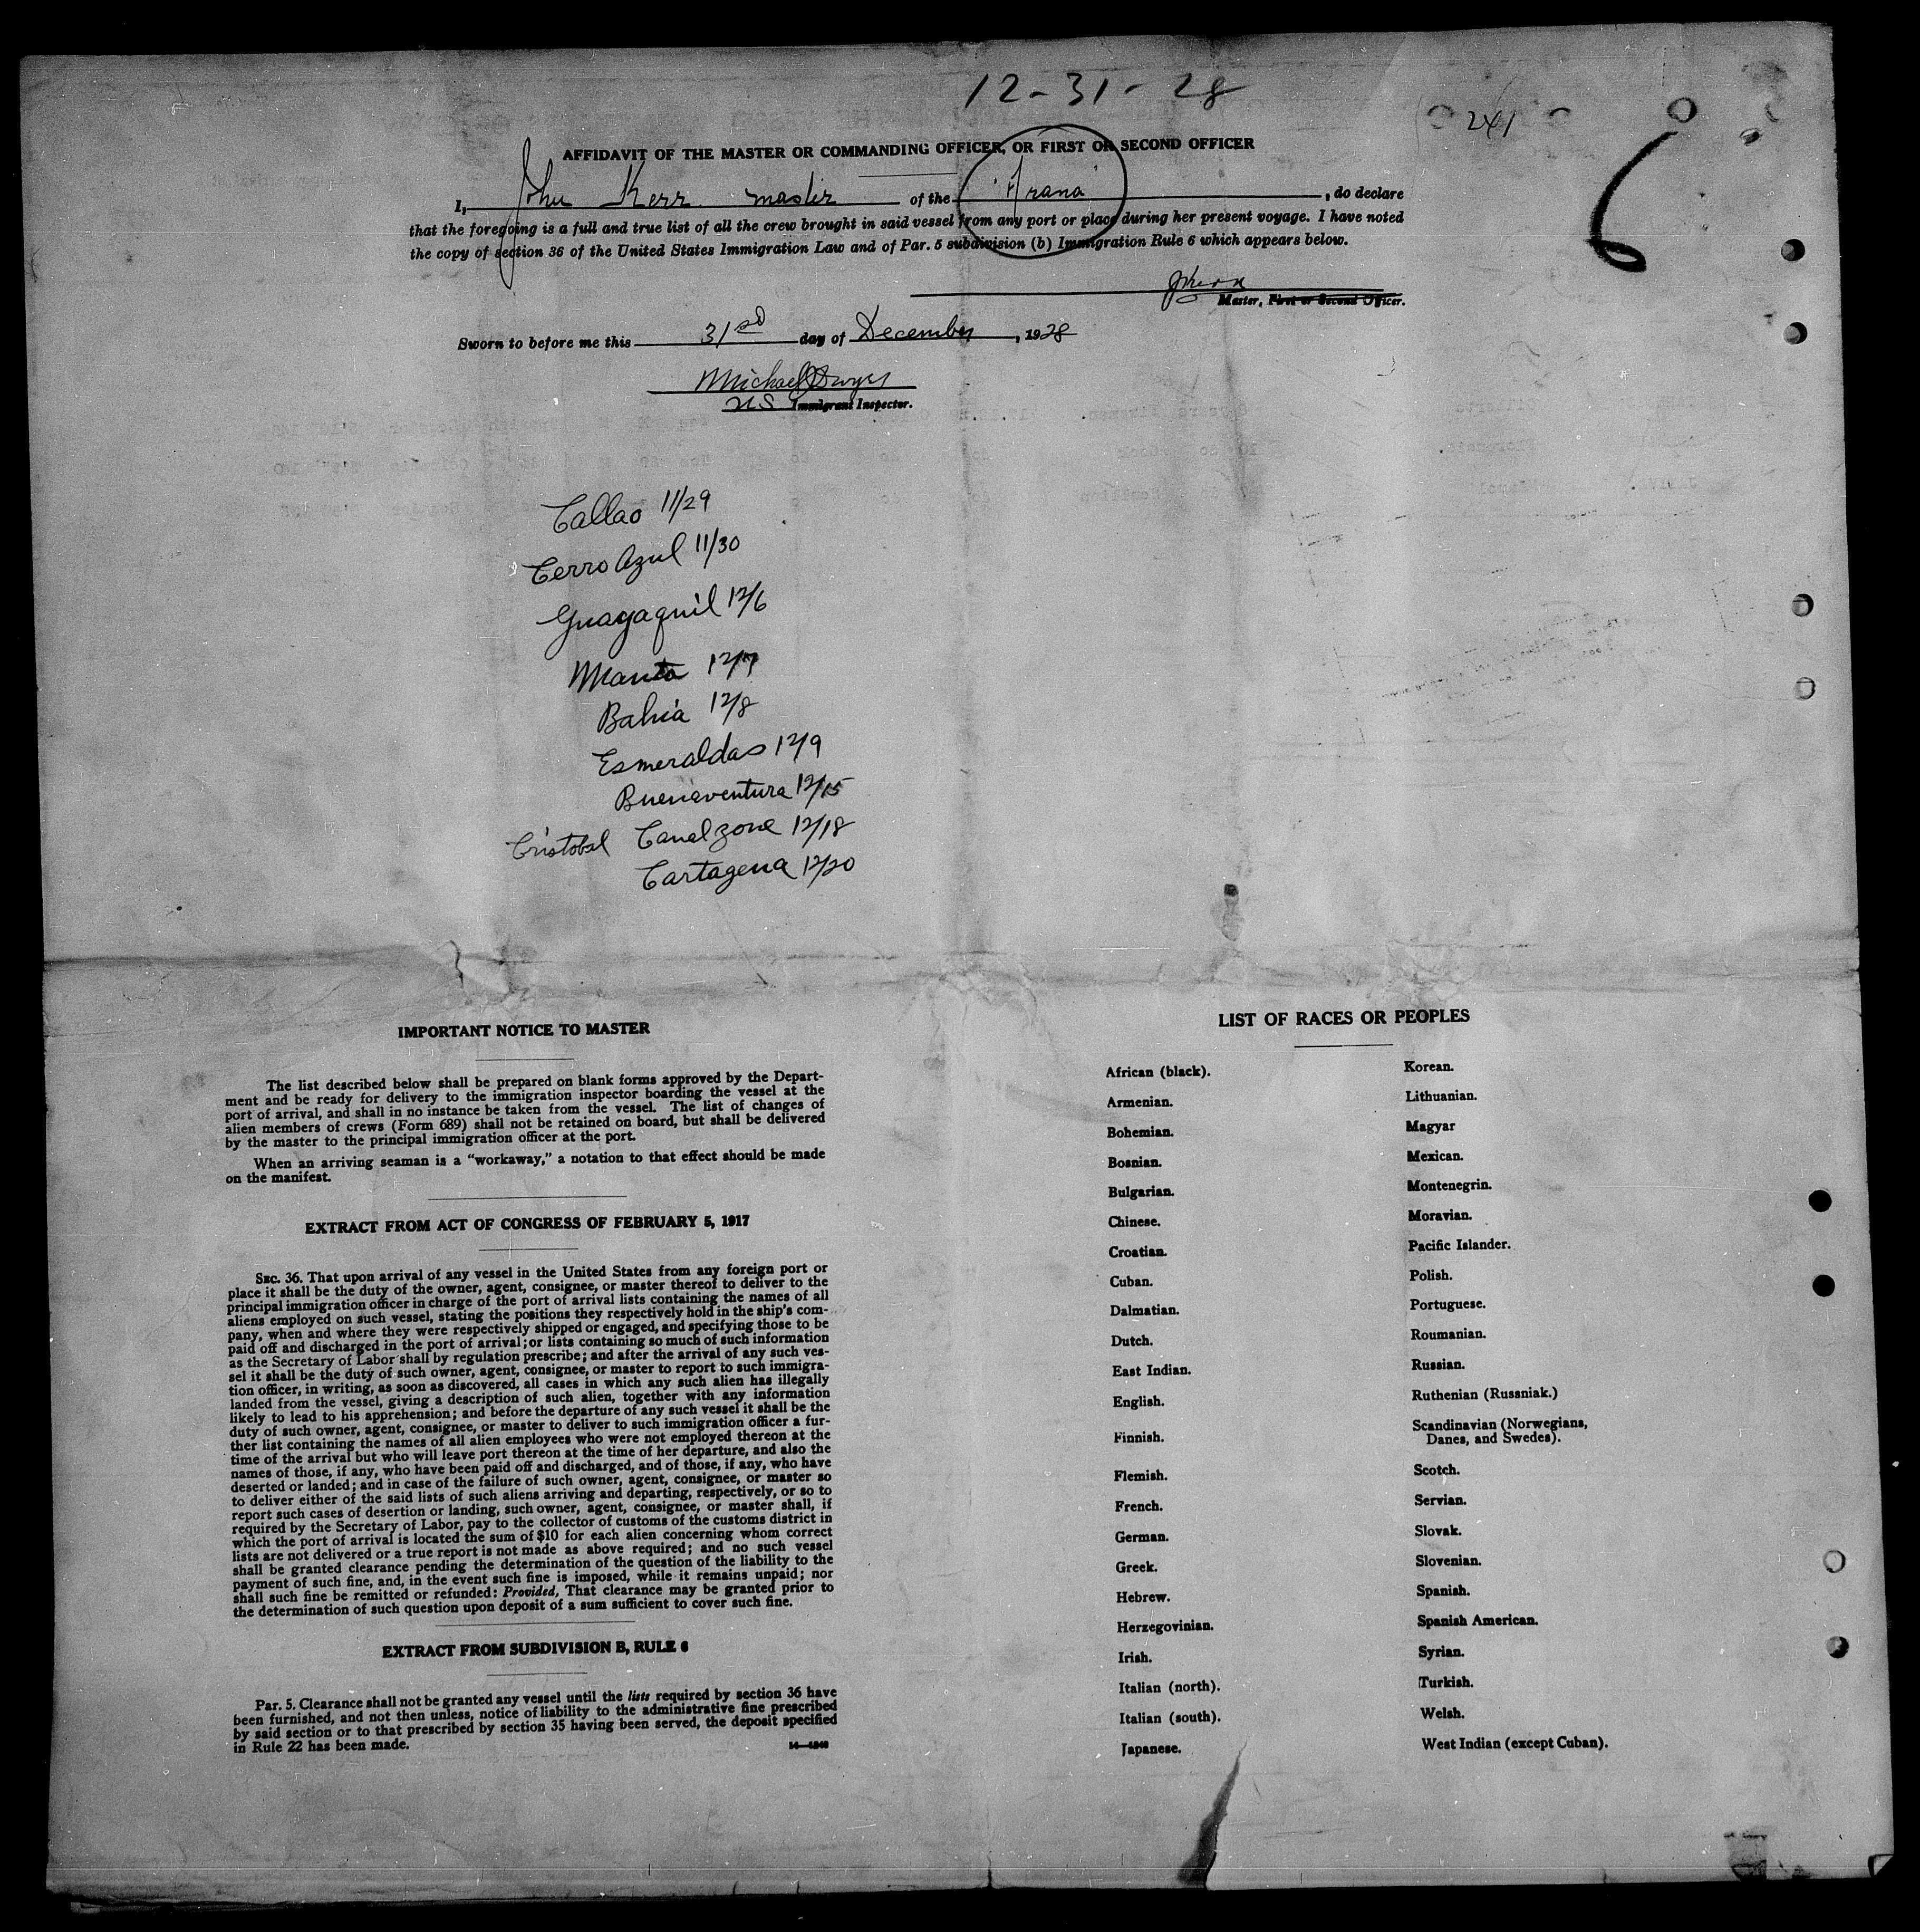 12-31-28
241
6
AFFIDAVIT OF THE MASTER OR COMMANDING OFFICER, OR FIRST OR SECOND OFFICER
I, John Kerr master of the "Arana", do declare
that the foregoing is a full and true list of all the crew brought in said vessel from any port or place during her present voyage. I have noted
the copy of section 36 of the United States Immigration Law and of Par. 5 subdivision (b) Immigration Rule 6 which appears below.
J Kerr
Master, First or Second Officer.
Sworn to before me this 31st day of December, 1928
Michael Dwyer
U.S. Immigrant Inspector.
Callao 11/29
Cerro Azul 11/30
Guayaquil 12/6
Manta 12/7
Bahia 12/8
Esmeraldas 12/9
Buenaventura 12/15
Cristobal Canal zone 12/18
Cartagena 12/20
IMPORTANT NOTICE TO MASTER
The list described below shall be prepared on blank forms approved by the Depart-
ment and be ready for delivery to the immigration inspector boarding the vessel at the
port of arrival, and shall in no instance be taken from the vessel. The list of changes of
alien members of crews (Form 689) shall not be retained on board, but shall be delivered
by the master to the principal immigration officer at the port.
When an arriving seaman is a "workaway," a notation to that effect should be made
on the manifest.
EXTRACT FROM ACT OF CONGRESS OF FEBRUARY 5, 1917
SEC. 36. That upon arrival of any vessel in the United States from any foreign port or
place it shall be the duty of the owner, agent, consignee, or master thereof to deliver to the
principal immigration officer in charge of the port of arrival lists containing the names of all
aliens employed on such vessel, stating the positions they respectively hold in the ship's com-
pany, when and where they were respectively shipped or engaged, and specifying those to be
paid off and discharged in the port of arrival; or lists containing so much of such information
as the Secretary of Labor shall by regulation prescribe; and after the arrival of any such ves-
sel it shall be the duty of such owner, agent, consignee, or master to report to such immigra-
tion officer, in writing, as soon as discovered, all cases in which any such alien has illegally
landed from the vessel, giving a description of such alien, together with any information
likely to lead to his apprehension; and before the departure of any such vessel it shall be the
duty of such owner, agent, consignee, or master to deliver to such immigration officer a fur-
ther list containing the names of all alien employees who were not employed thereon at the
time of the arrival but who will leave port thereon at the time of her departure, and also the
names of those, if any, who have been paid off and discharged, and of those, if any, who have
deserted or landed; and in case of the failure of such owner, agent, consignee, or master so
to deliver either of the said lists of such aliens arriving and departing, respectively, or so to
report such cases of desertion or landing, such owner, agent, consignee, or master shall, if
required by the Secretary of Labor, pay to the collector of customs of the customs district in
which the port of arrival is located the sum of $10 for each alien concerning whom correct
lists are not delivered or a true report is not made as above required; and no such vessel
shall be granted clearance pending the determination of the question of the liability to the
payment of such fine, and, in the event such fine is imposed, while it remains unpaid; nor
shall such fine be remitted or refunded: Provided, That clearance may be granted prior to
the determination of such question upon deposit of a sum sufficient to cover such fine.
EXTRACT FROM SUBDIVISION B, RULE 6
Par. 5. Clearance shall not be granted any vessel until the lists required by section 36 have
been furnished, and not then unless, notice of liability to the administrative fine prescribed
by said section or to that prescribed by section 35 having been served, the deposit specified
in Rule 22 has been made.
LIST OF RACES OR PEOPLES
African (black).
Armenian.
Bohemian.
Bosnian.
Bulgarian.
Chinese.
Croatian.
Cuban.
Dalmatian.
Dutch.
East Indian.
English.
Finnish.
Flemish.
French.
German.
Greek.
Hebrew.
Herzegovinian.
Irish.
Italian (north).
Italian (south).
Japanese.
Korean.
Lithuanian.
Magyar
Mexican.
Montenegrin.
Moravian.
Pacific Islander.
Polish.
Portuguese.
Roumanian.
Russian.
Ruthenian (Russniak.)
Scandinavian (Norwegians,
Danes, and Swedes).
Scotch.
Servian.
Slovak.
Slovenian.
Spanish.
Spanish American.
Syrian.
Turkish.
Welsh.
West Indian (except Cuban).